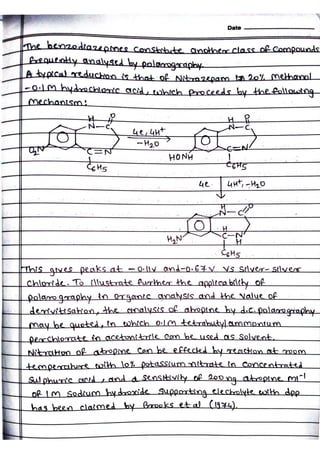 Date
The benzodiazepines constitute another class of Compounds
frequently analysed by polarography.
A typical reduction is that of Nitrazepam in 20% methanol
-0.1M hydrochloric acid, which proceeds by the following
mechanism:
H O
N-C
4e, 4H+
-H2O
H O
N-C
O2N
C=N
C6H5
HONH
C=N
C6H5
4e 4H+, -H2O
H O
N-C
H2N
C-N
H H
C6H5
This gives peaks at -0.11V and-0.67V vs silver-silver
chloride. To illustrate further the applicability of
polarography in organic analysis and the value of
derivitsation, the analysis of atropine by d.c. polarography
may be quoted, in which 0.1M tetrabutylammonium
perchlorate in acetonitrile can be used as solvent.
Nitration of atropine can be effected by reaction at room
temperature with 10% potassium nitrate in concentrated
sulphuric acid, and a sensitivity of 200ng atropine ml-1
of 1M sodium hydroxide supporting electrolyte with dpp
has been claimed by Brooks et al (1974).